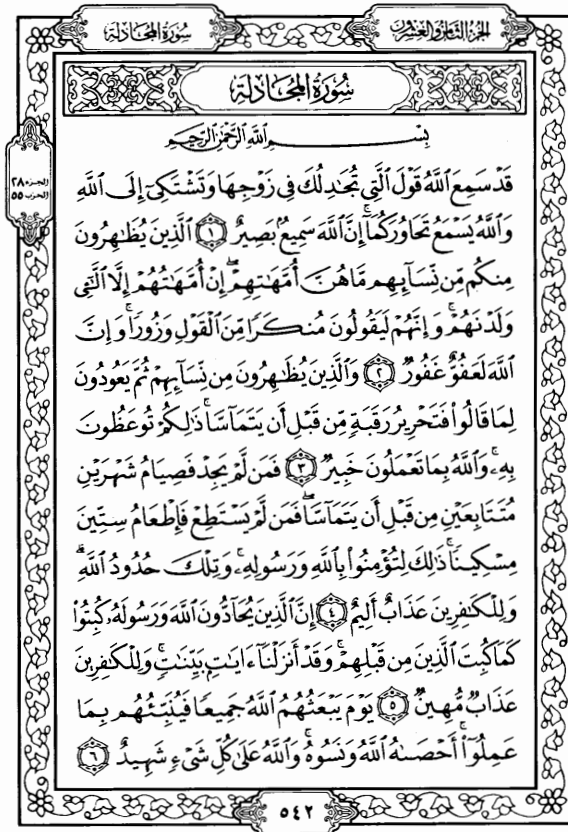 الجزء الثامن والعشرون
سورة المجادلة
سُورَةُ المُجَادلَة
الجزء ٢٨
الحزب ٥٥
بِسْمِ ٱللَّهِ ٱلرَّحْمَٰنِ ٱلرَّحِيمِ
قَدْ سَمِعَ ٱللَّهُ قَوْلَ ٱلَّتِى تُجَٰدِلُكَ فِى زَوْجِهَا وَتَشْتَكِىٓ إِلَى ٱللَّهِ
وَٱللَّهُ يَسْمَعُ تَحَاوُرَكُمَآ ۚ إِنَّ ٱللَّهَ سَمِيعٌۢ بَصِيرٌ ١ ٱلَّذِينَ يُظَٰهِرُونَ
مِنكُم مِّن نِّسَآئِهِم مَّا هُنَّ أُمَّهَٰتِهِمْ ۖ إِنْ أُمَّهَٰتُهُمْ إِلَّا ٱلَّٰٓـِٔى
وَلَدْنَهُمْ ۚ وَإِنَّهُمْ لَيَقُولُونَ مُنكَرًا مِّنَ ٱلْقَوْلِ وَزُورًا ۚ وَإِنَّ
ٱللَّهَ لَعَفُوٌّ غَفُورٌ ٢ وَٱلَّذِينَ يُظَٰهِرُونَ مِن نِّسَآئِهِمْ ثُمَّ يَعُودُونَ
لِمَا قَالُوا۟ فَتَحْرِيرُ رَقَبَةٍ مِّن قَبْلِ أَن يَتَمَآسَّا ۚ ذَٰلِكُمْ تُوعَظُونَ
بِهِۦ ۚ وَٱللَّهُ بِمَا تَعْمَلُونَ خَبِيرٌ ٣ فَمَن لَّمْ يَجِدْ فَصِيَامُ شَهْرَيْنِ
مُتَتَابِعَيْنِ مِن قَبْلِ أَن يَتَمَآسَّا ۖ فَمَن لَّمْ يَسْتَطِعْ فَإِطْعَامُ سِتِّينَ
مِسْكِينًا ۚ ذَٰلِكَ لِتُؤْمِنُوا۟ بِٱللَّهِ وَرَسُولِهِۦ ۚ وَتِلْكَ حُدُودُ ٱللَّهِ ۗ
وَلِلْكَٰفِرِينَ عَذَابٌ أَلِيمٌ ٤ إِنَّ ٱلَّذِينَ يُحَآدُّونَ ٱللَّهَ وَرَسُولَهُۥ كُبِتُوا۟
كَمَا كُبِتَ ٱلَّذِينَ مِن قَبْلِهِمْ ۚ وَقَدْ أَنزَلْنَآ ءَايَٰتٍۭ بَيِّنَٰتٍ ۚ وَلِلْكَٰفِرِينَ
عَذَابٌ مُّهِينٌ ٥ يَوْمَ يَبْعَثُهُمُ ٱللَّهُ جَمِيعًا فَيُنَبِّئُهُم بِمَا
عَمِلُوٓا۟ ۚ أَحْصَىٰهُ ٱللَّهُ وَنَسُوهُ ۚ وَٱللَّهُ عَلَىٰ كُلِّ شَىْءٍ شَهِيدٌ ٦
٥٤٢